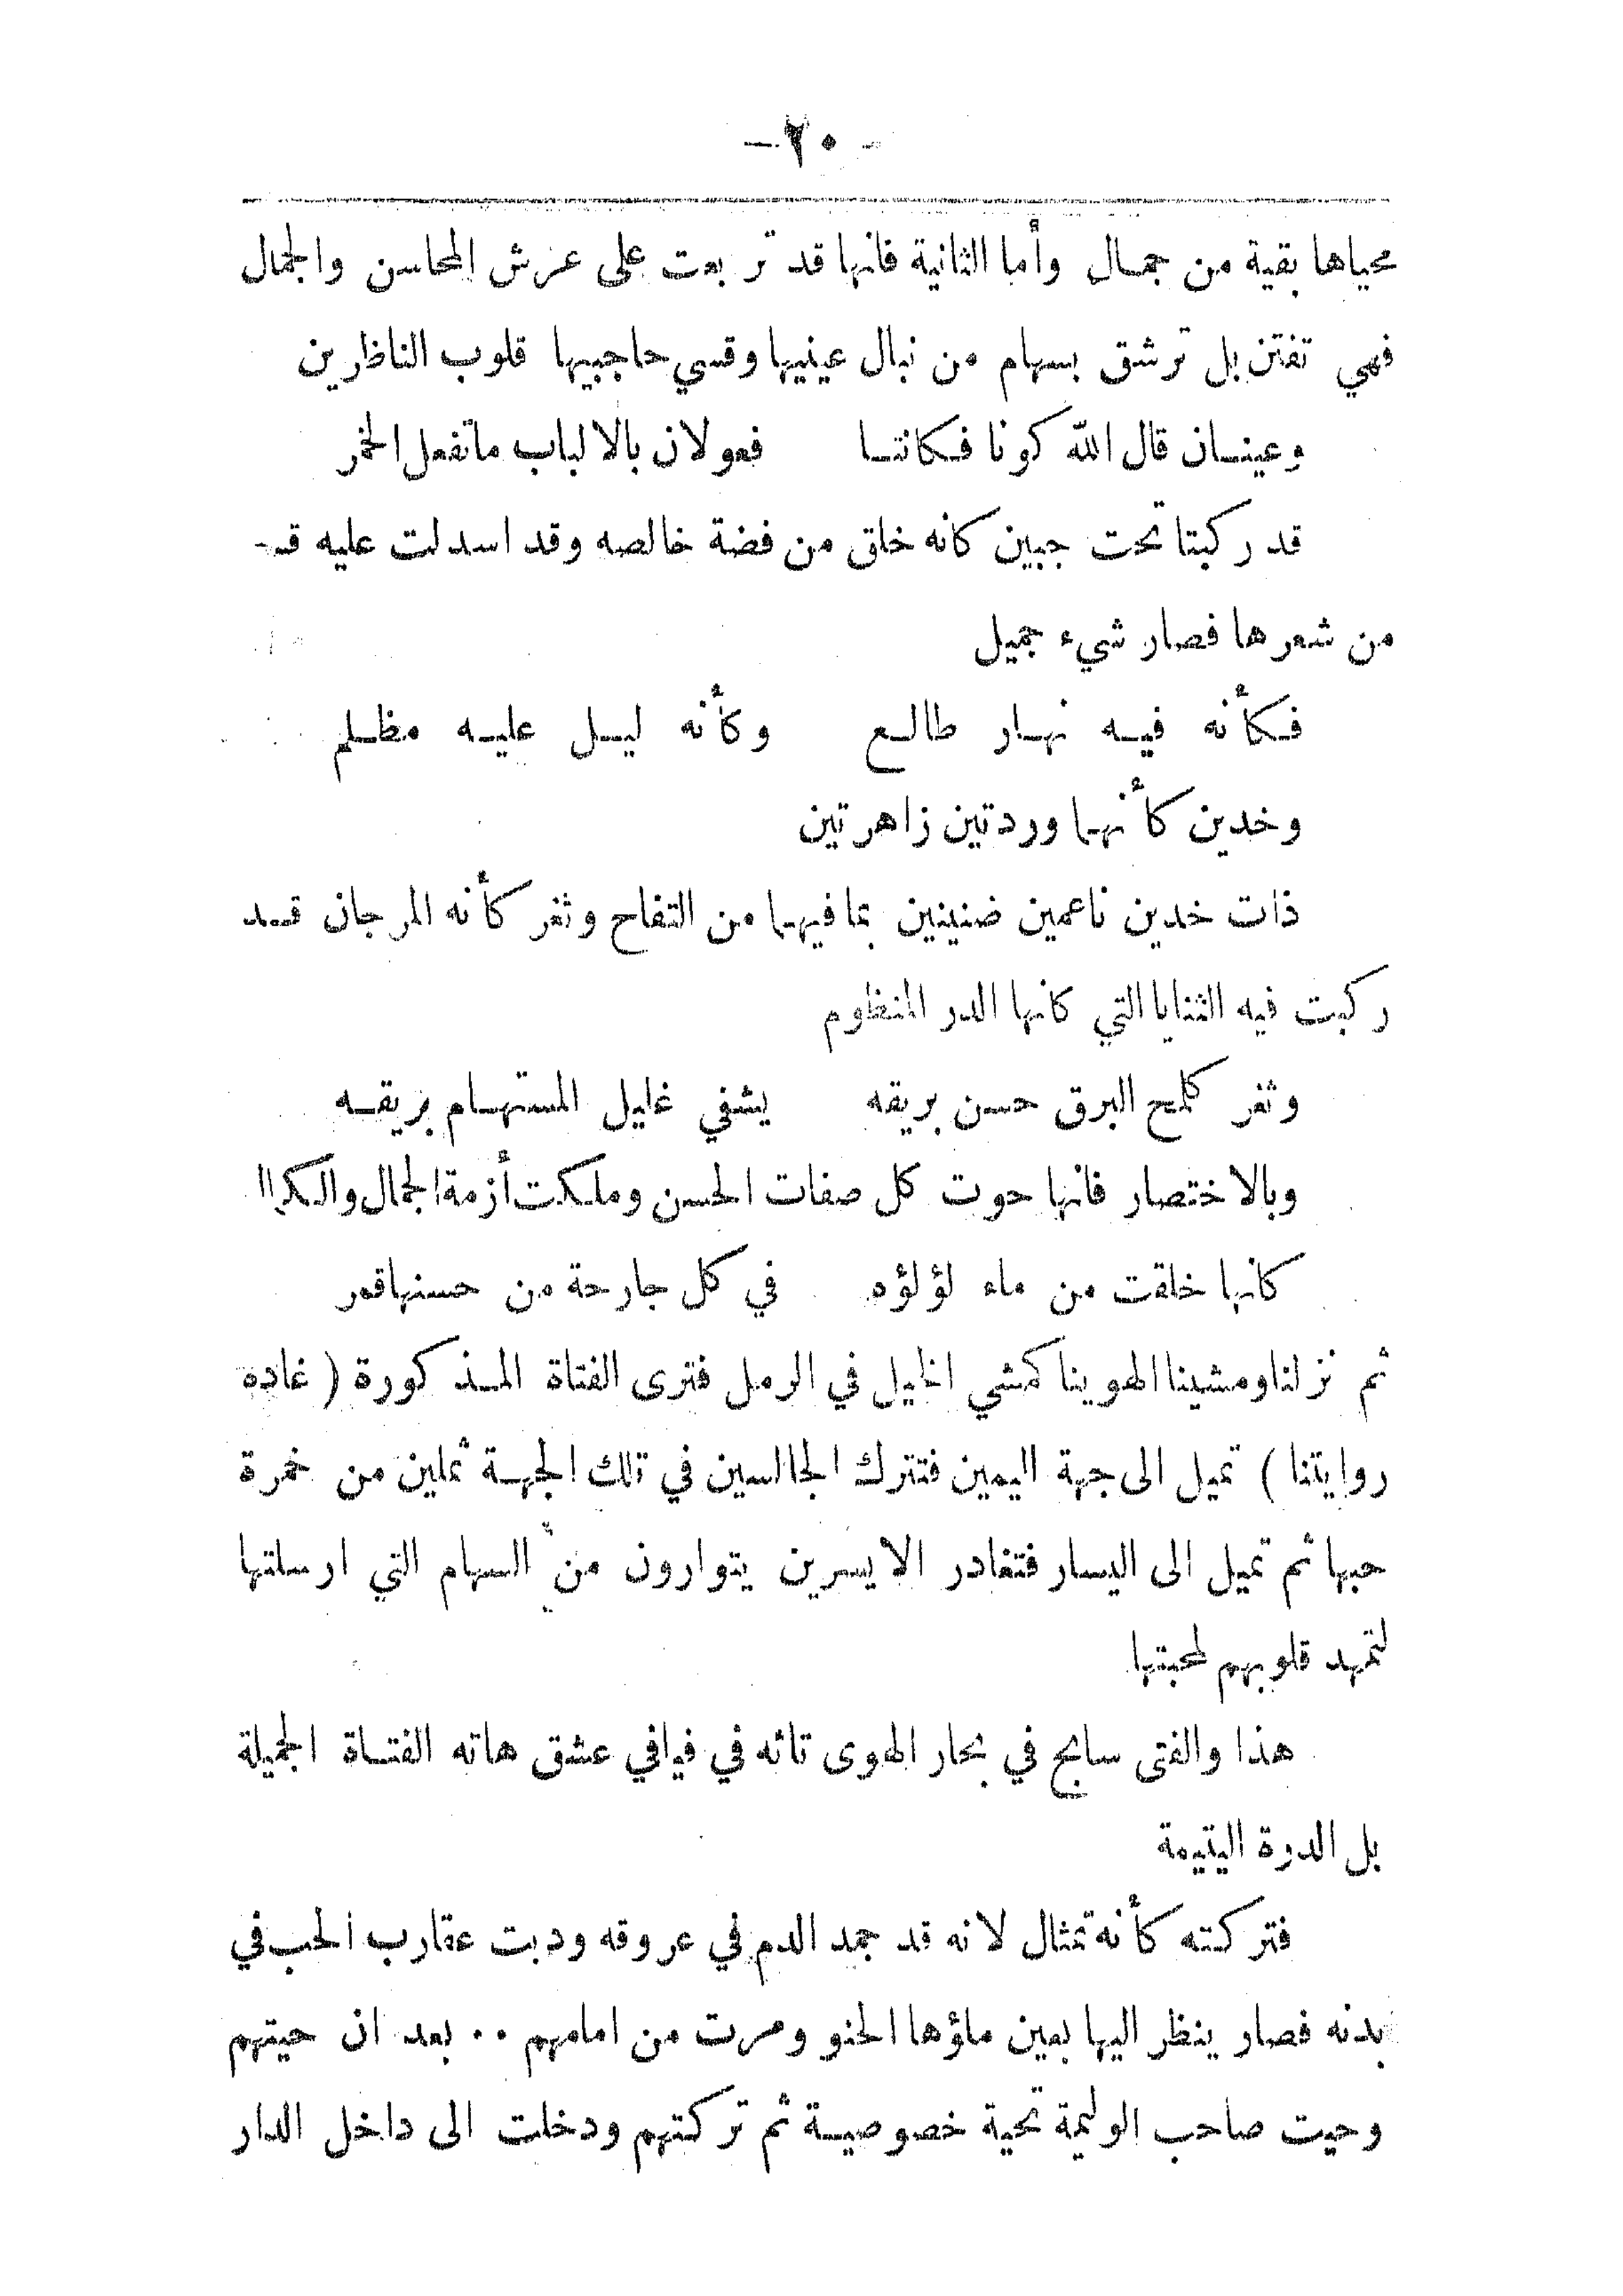 - ٢٠ -
محياها بقية من جمال وأما الثانية فانها قد تربعت على عرش المحاسن والجمال
فهي تفتن بل ترشق بسهام من نبال عينيها وقسي حاجبيها قلوب الناظرين
وعينان قال الله كونا فكانتا فعولان بالالباب ماتفعل الخمر
قد ركبتا تحت جبين كانه خلق من فضة خالصه وقد اسدلت عليه
من شعرها فصار شيء جميل
فكأنه فيه نهار طالع وكأنه ليل عليه مظلم
وخدين كأنهما وردتين زاهرتين
ذات خدين ناعمين ضنينين بما فيهما من التفاح وثغر كأنه المرجان قد
ركبت فيه الثنايا التي كانها الدر المنظوم
وثغر كلمح البرق حسن بريقه يشفي غليل المستهام بريقه
وبالاختصار فانها حوت كل صفات الحسن وملكت أزمة الجمال
كانها خلقت من ماء لؤلؤه في كل جارحة من حسنها قمر
ثم نزلنا ومشينا الهوينا كمشي الخيل في الرمل فترى الفتاة المذكورة ( غاده
روايتنا ) تميل الى جهة اليمين فتترك الجالسين في تلك الجهة ثملين من خمرة
حبها ثم تميل الى اليسار فتغادر الايسرين يتوارون من السهام التي ارسلتها
لتمهد قلوبهم لمحبتها
هذا والفتى سابح في بحار الهوى تائه في فيافي عشق هاته الفتاة الجميلة
بل الدرة اليتيمة
فتركته كأنه تمثال لانه قد جمد الدم في عروقه ودبت عقارب الحب في
بدنه فصار ينظر اليها بعين ماؤها الحنو ومرت من امامهم .. بعد ان حيتهم
وحيت صاحب الوليمة تحية خصوصية ثم تركتهم ودخلت الى داخل الدار